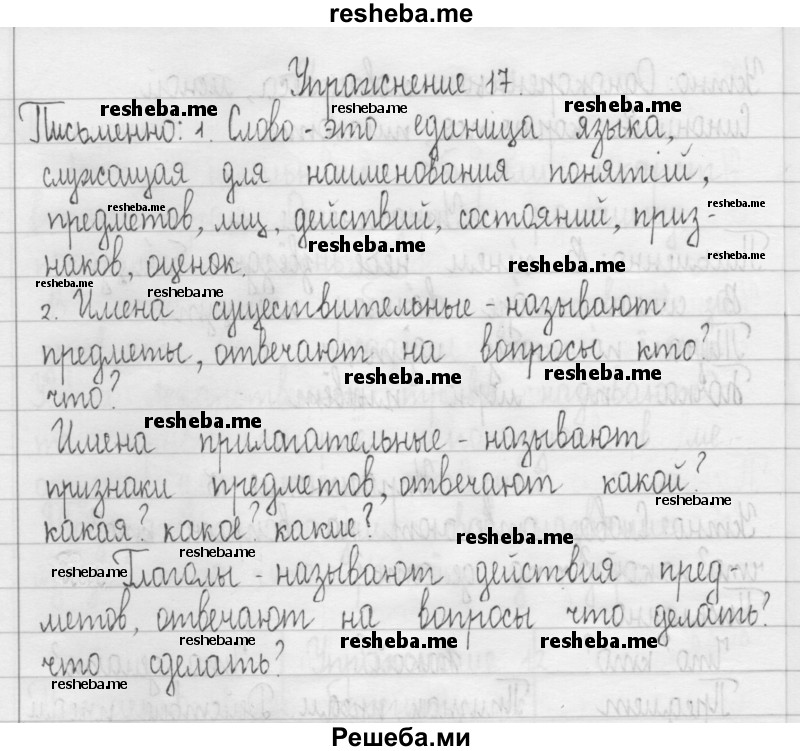 resheba.me
Упражнение 17.
resheba.me resheba.me resheba.me
Письменно: 1. Слово - это единица языка,
служащая для наименования понятий,
resheba.me resheba.me
предметов, лиц, действий, состояний, приз-
resheba.me resheba.me
resheba.me
наков, оценок.
resheba.me resheba.me
2. Имена существительные - называют
предметы, отвечают на вопросы кто?
resheba.me resheba.me
что?
resheba.me
Имена прилагательные - называют
признаки предметов, отвечают какой?
resheba.me
какая? какое? какие?
resheba.me
resheba.me resheba.me
Глаголы - называют действия пред-
метов, отвечают на вопросы что делать?
resheba.me resheba.me resheba.me
что сделать?
resheba.me
Решеба.ми